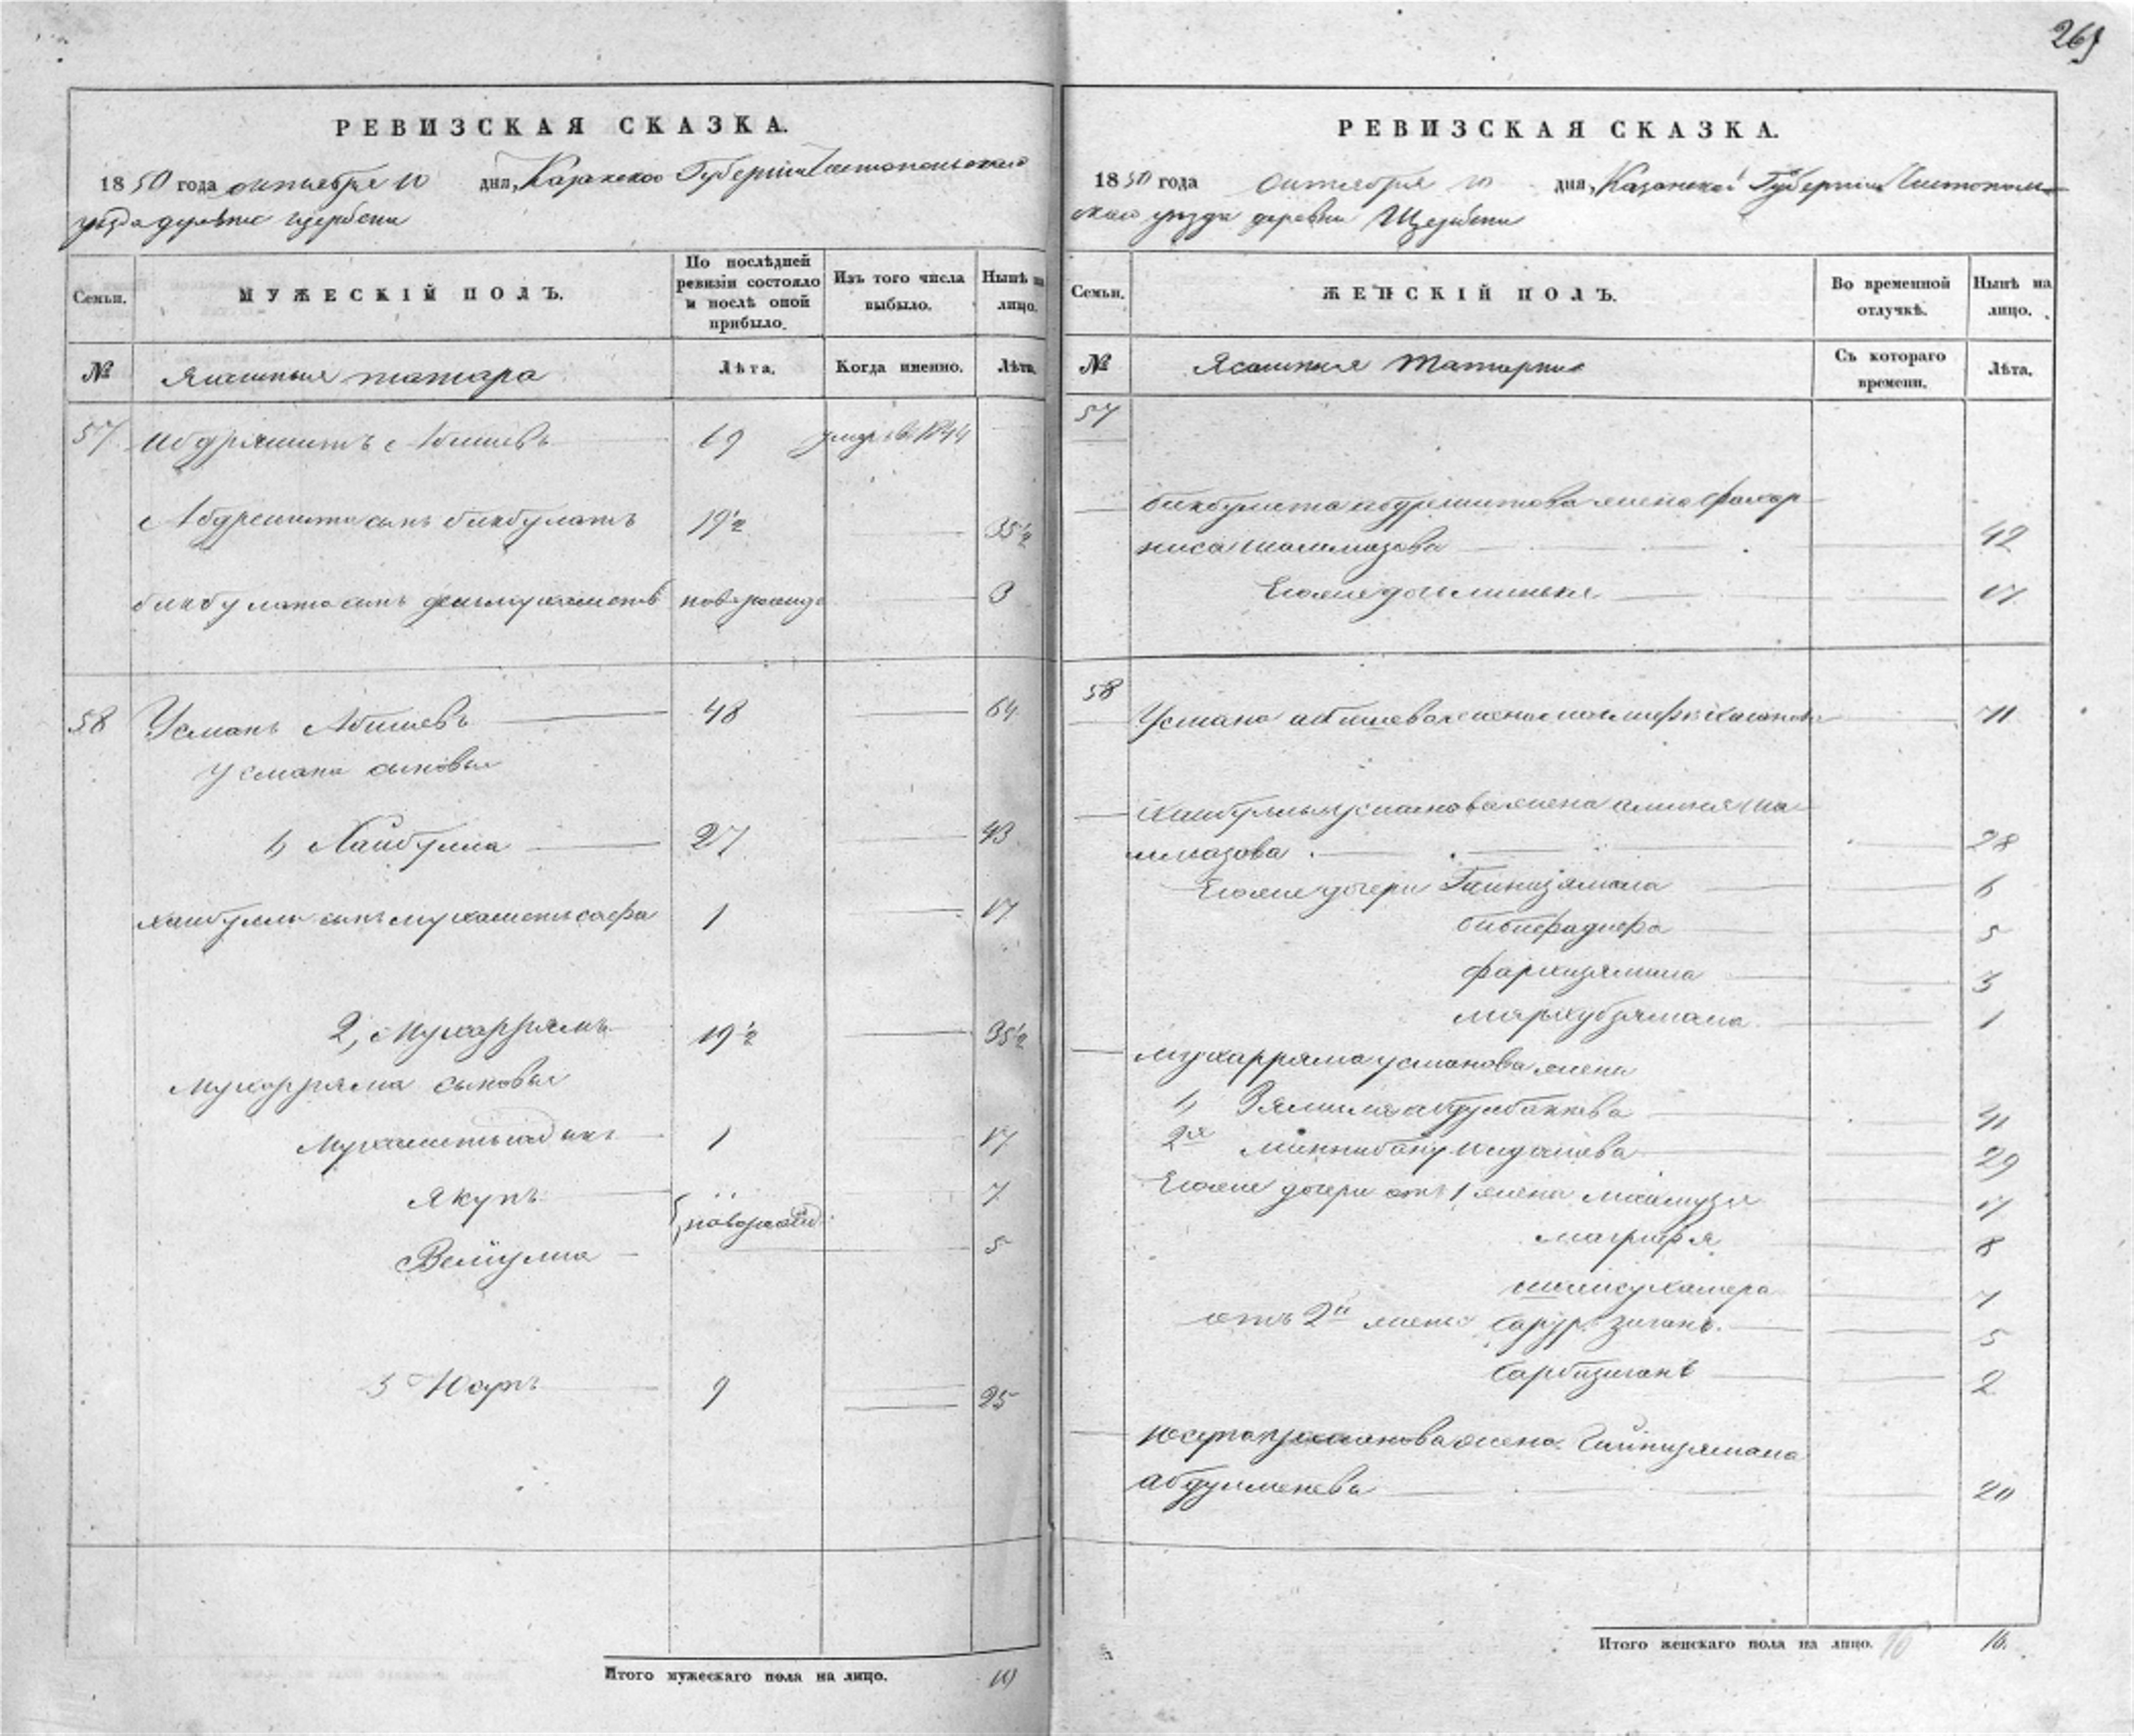 265
РЕВИЗСКАЯ СКАЗКА.
1850 года октября 10 дня, Казанской Губернии Чистопольскаго
уѣзда деревни Щербени
Семьи.
МУЖЕСКІЙ ПОЛЪ.
По послѣдней ревизіи состояло и послѣ оной прибыло.
Изъ того числа выбыло.
Нынѣ на лицо.
№
Ясашныя татара
Лѣта.
Когда именно.
Лѣта.
57 Абдряшитъ Абишевъ 69 умеръ въ 1844
Абдрешита сынъ бикбулатъ 19½ 35½
бикбулата сынъ новорожд 3
58 Усманъ Абишевъ 48 64
Усмана сыновья
1, Хайбулла 27 43
хайбуллы сынъ мухаметсафа 1 17
2, Мухаррямъ 19½ 35½
Мухарряма сыновья
Мухаметьсадыкъ 1 17
Якупъ 7
новорожд
Велиулла 5
3 Юсупъ 9 25
Итого мужескаго пола на лицо. 10
РЕВИЗСКАЯ СКАЗКА.
1850 года октября 10 дня, Казанской Губернии Чистополь-
скаго уѣзда деревни Щербени
Семьи.
ЖЕНСКІЙ ПОЛЪ.
Во временной отлучкѣ.
Нынѣ на лицо.
№
Ясашныя Татарки
Съ котораго времени.
Лѣта.
57
бикбулата абдрешитова жена фахар
ниса 42
Егоже дочь 17
58
Усмана абишева жена 71
Хайбуллы усманова жена
28
Егоже дочери Гайнизямала 6
бибигадифа 5
фархизямала 3
1
Мухарряма усманова жены
1, Зямиля 41
2я миннибану 29
Егоже дочери отъ 1 жены 17
магрифя 8
шамсукамера 7
отъ 2й жены 5
сарбизиганъ 2
Юсупа усманова жена Гайнизямала
абдулменева 20
Итого женскаго пола на лицо. 16 16.